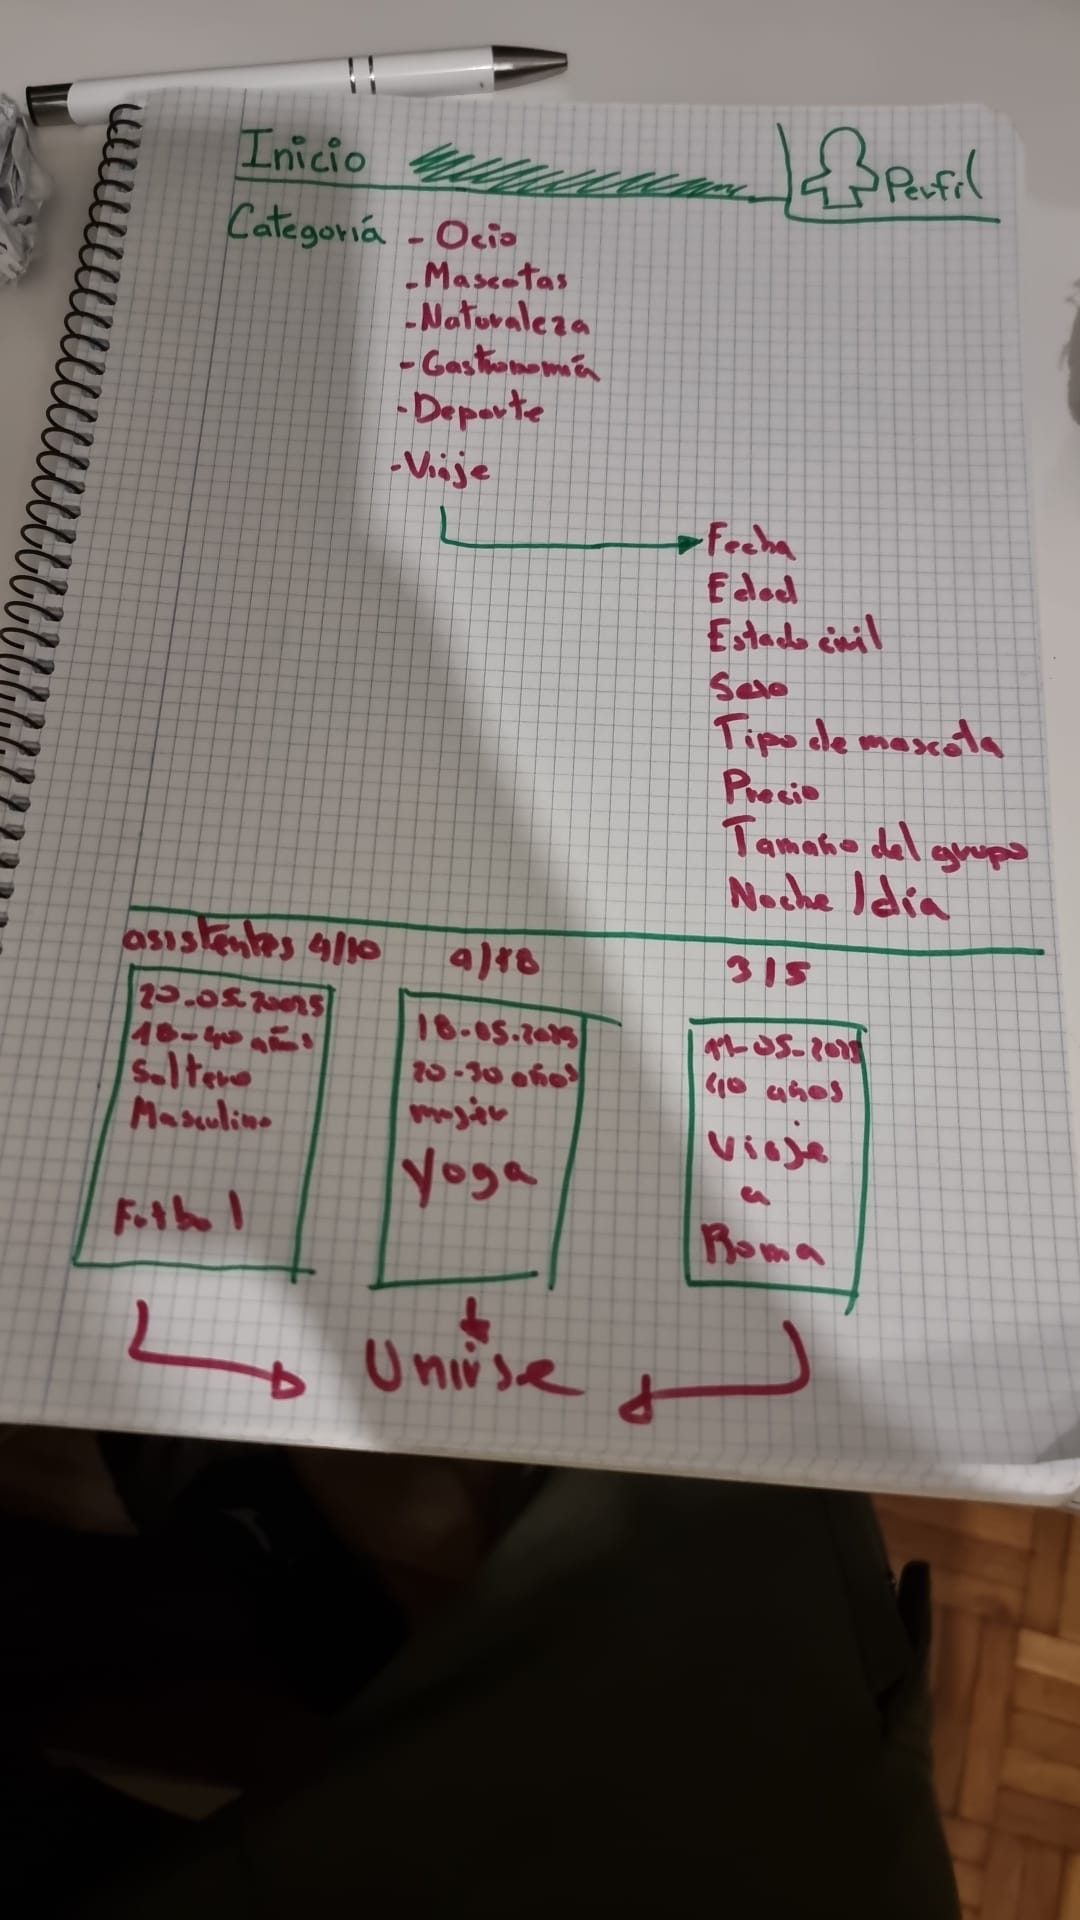 Inicio
Perfil
Categoría - Ocio
- Mascotas
- Naturaleza
- Gastronomía
- Deporte
- Viaje
Fecha
Edad
Estado civil
Sexo
Tipo de mascota
Precio
Tamaño del grupo
Noche / día
asistentes 4/10
18-40 años
Soltero
Masculino
Futbol
18-05.2025
20-30 años
mujer
Yoga
3/5
40 años
Viaje
a
Roma
Unirse